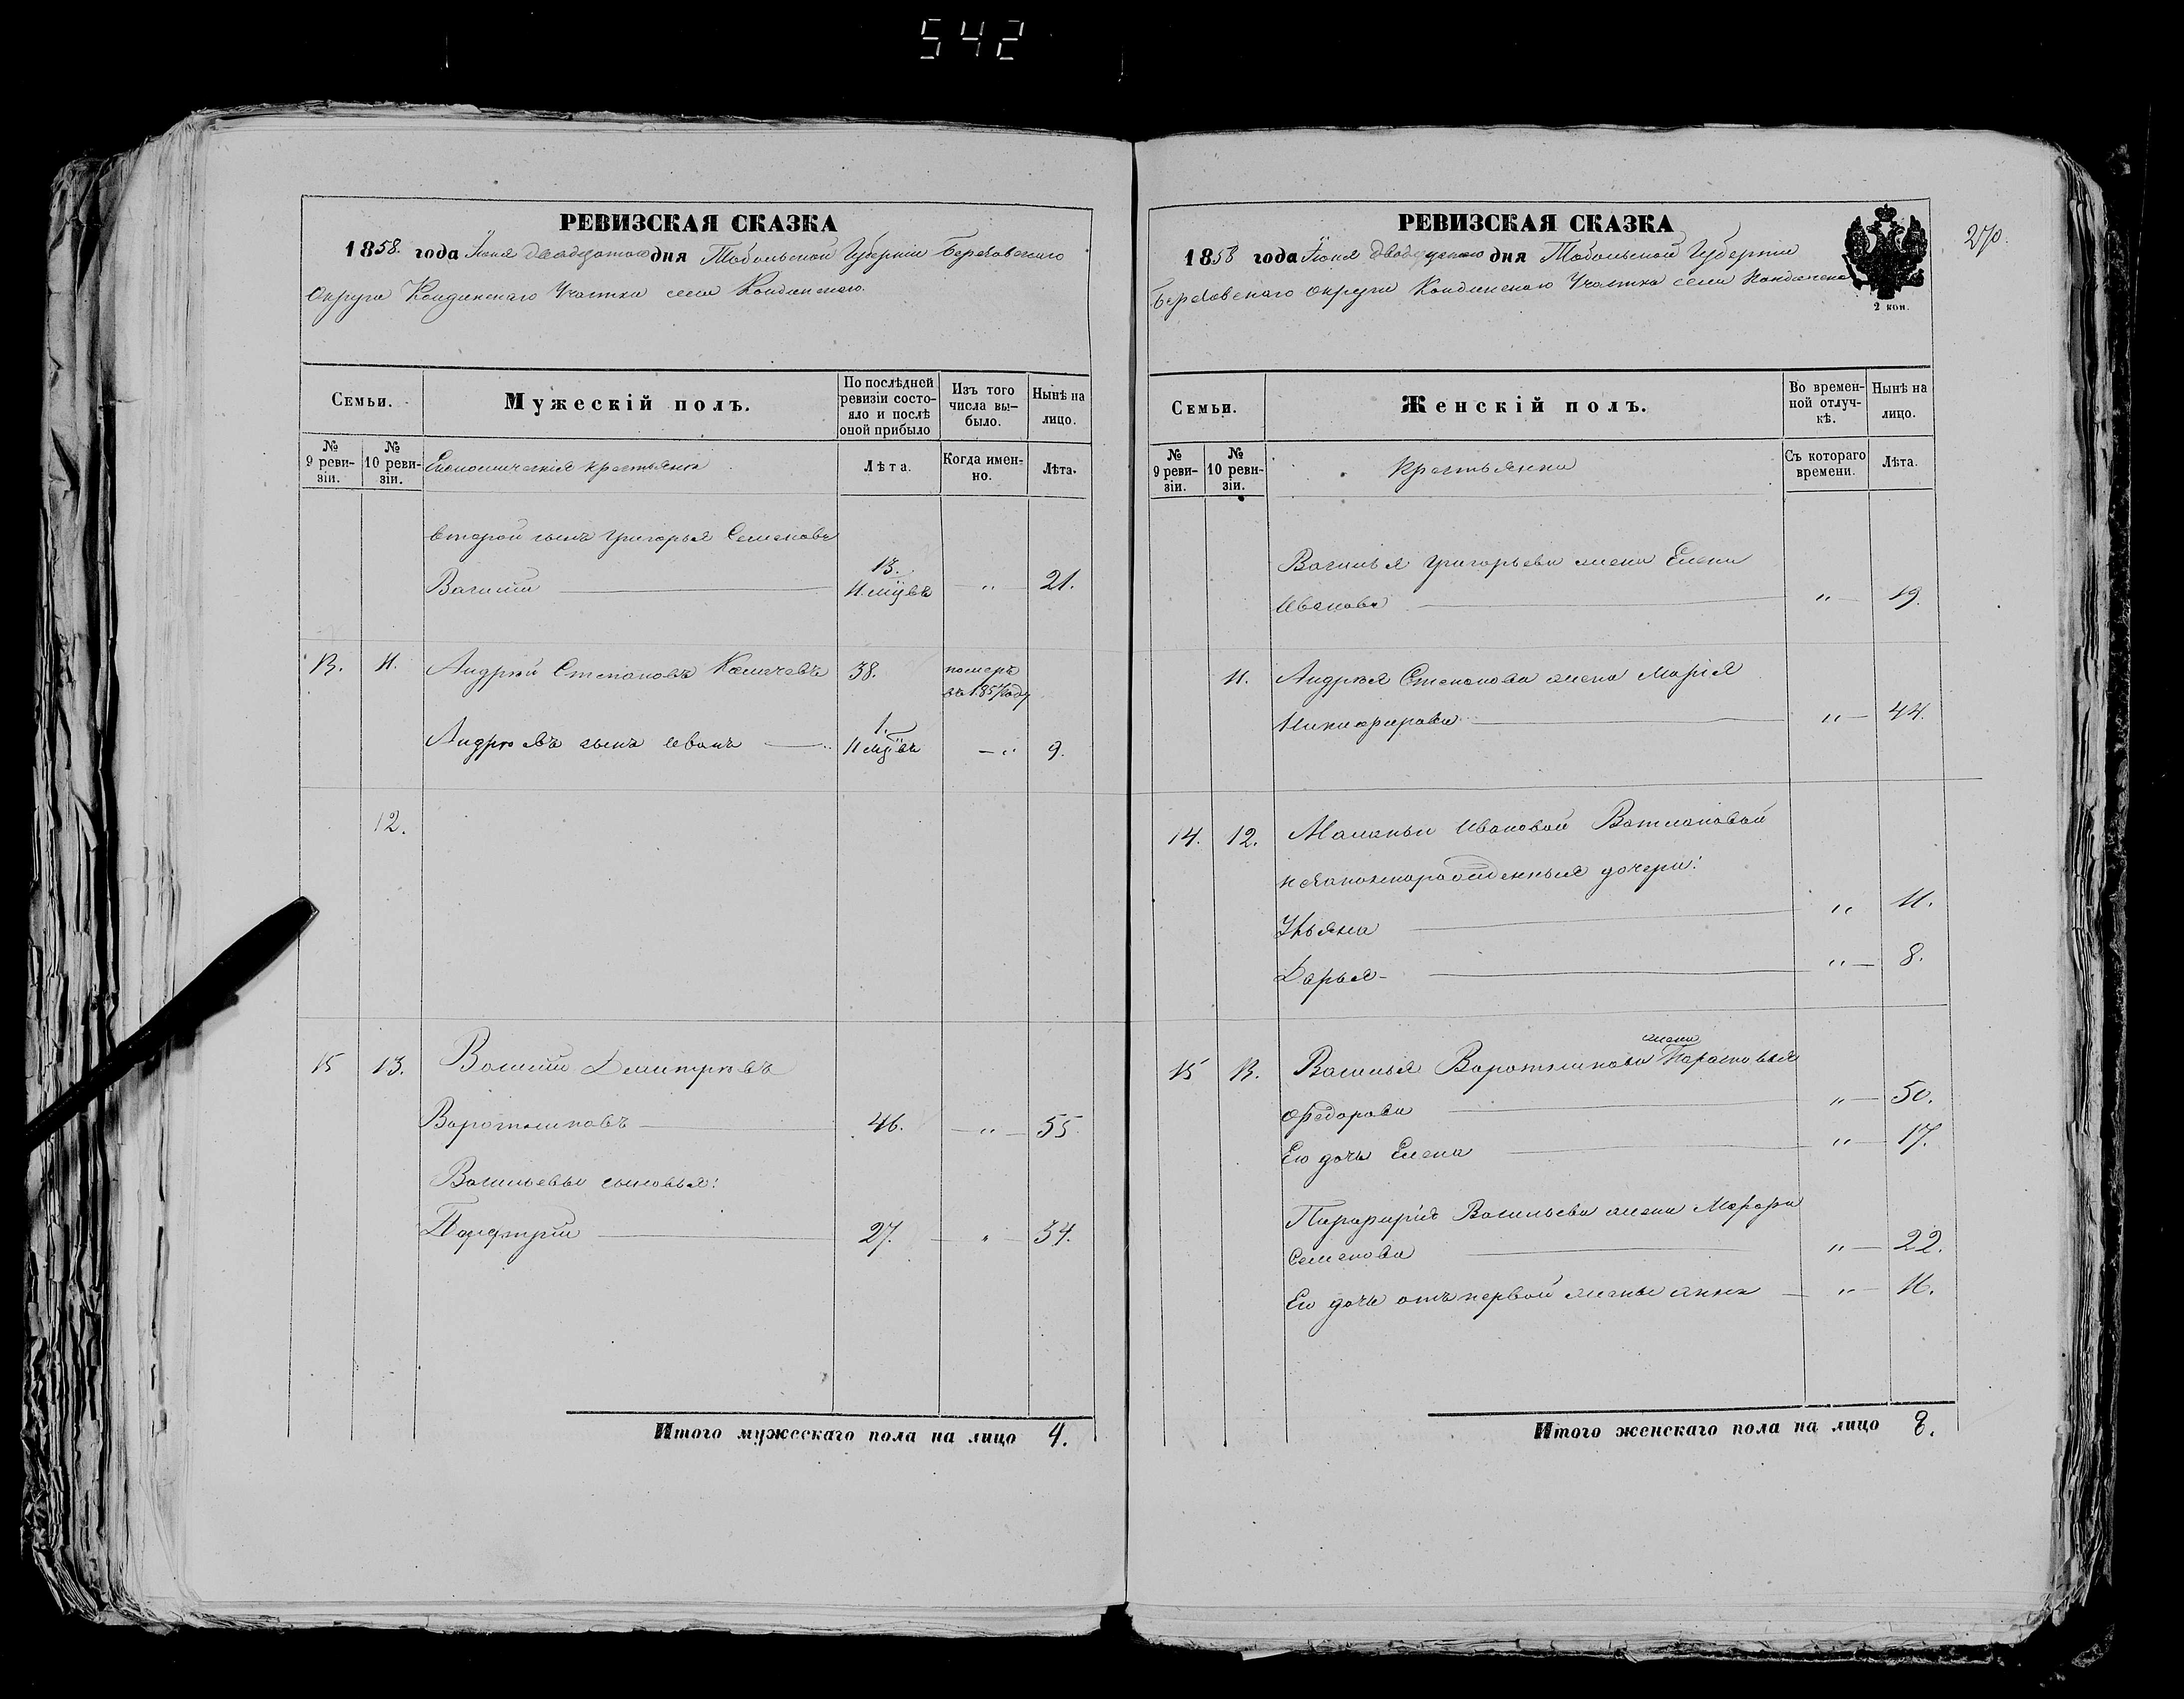 542
РЕВИЗСКАЯ СКАЗКА
1858. года Іюня двадцатого дня Тобольской Губерніи Березовскаго
Округа Кондинскаго Участка села Кондинскаго.
Семьи.
Мужескій полъ.
По послѣдней ревизіи состояло и послѣ оной прибыло
Изъ того числа выбыло.
Нынѣ на лицо.
№ 9 ревизіи.
№ 10 ревизіи.
Економическія крестьяна
Лѣта.
Когда именно.
Лѣта.
второй сынъ Григорья Семенова
Василій 13. 11 мцвъ " 21.
13. 11. Андрей Степановъ 38. померъ въ 1857 году
Андреевъ сынъ Иванъ 1. 11 мцвъ " 9.
12.
15 13. Василий Дмитріевъ
Воротниковъ 46. " 55.
Васильевы сыновья:
27. " 34.
Итого мужескаго пола на лицо 4.
РЕВИЗСКАЯ СКАЗКА
270.
1858 года Іюня двадцатого дня Тобольской Губерніи
Березовскаго округа Кондинскаго Участка села Кондинскаго
2 коп.
Семьи.
Женскій полъ.
Во временной отлучкѣ.
Нынѣ на лицо.
№ 9 ревизіи.
№ 10 ревизіи.
Крестьянки
Съ котораго времени.
Лѣта.
Василья Григорьева жена Елена
Иванова " 19.
11. Андрея Степанова жена Марія
Никифорова " 44.
14. 12. Маланьи Ивановой
незаконнорожденныя дочери:
Ульяна " 11.
Дарья " 8.
15 13. Василья Воротникова жена Парасковья
Федорова " 50.
Его дочь Елена " 17.
Парфирія Васильева жена Марфа
Семенова " 22.
Его дочь отъ первой жены Анна "
Итого женскаго пола на лицо 8.